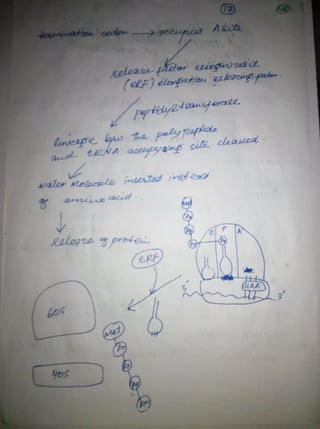 17
termination codon → occupies A site
release factor recognizes it
(eRF) elongation releasing factor.
peptidyl transferase
linkage b/w the polypeptide
and tRNA occupying site cleaved.
water molecule inserted instead
of amino acid.
release of protein
eRF
E P A
UAA
5' 3'
60S
40S
Met